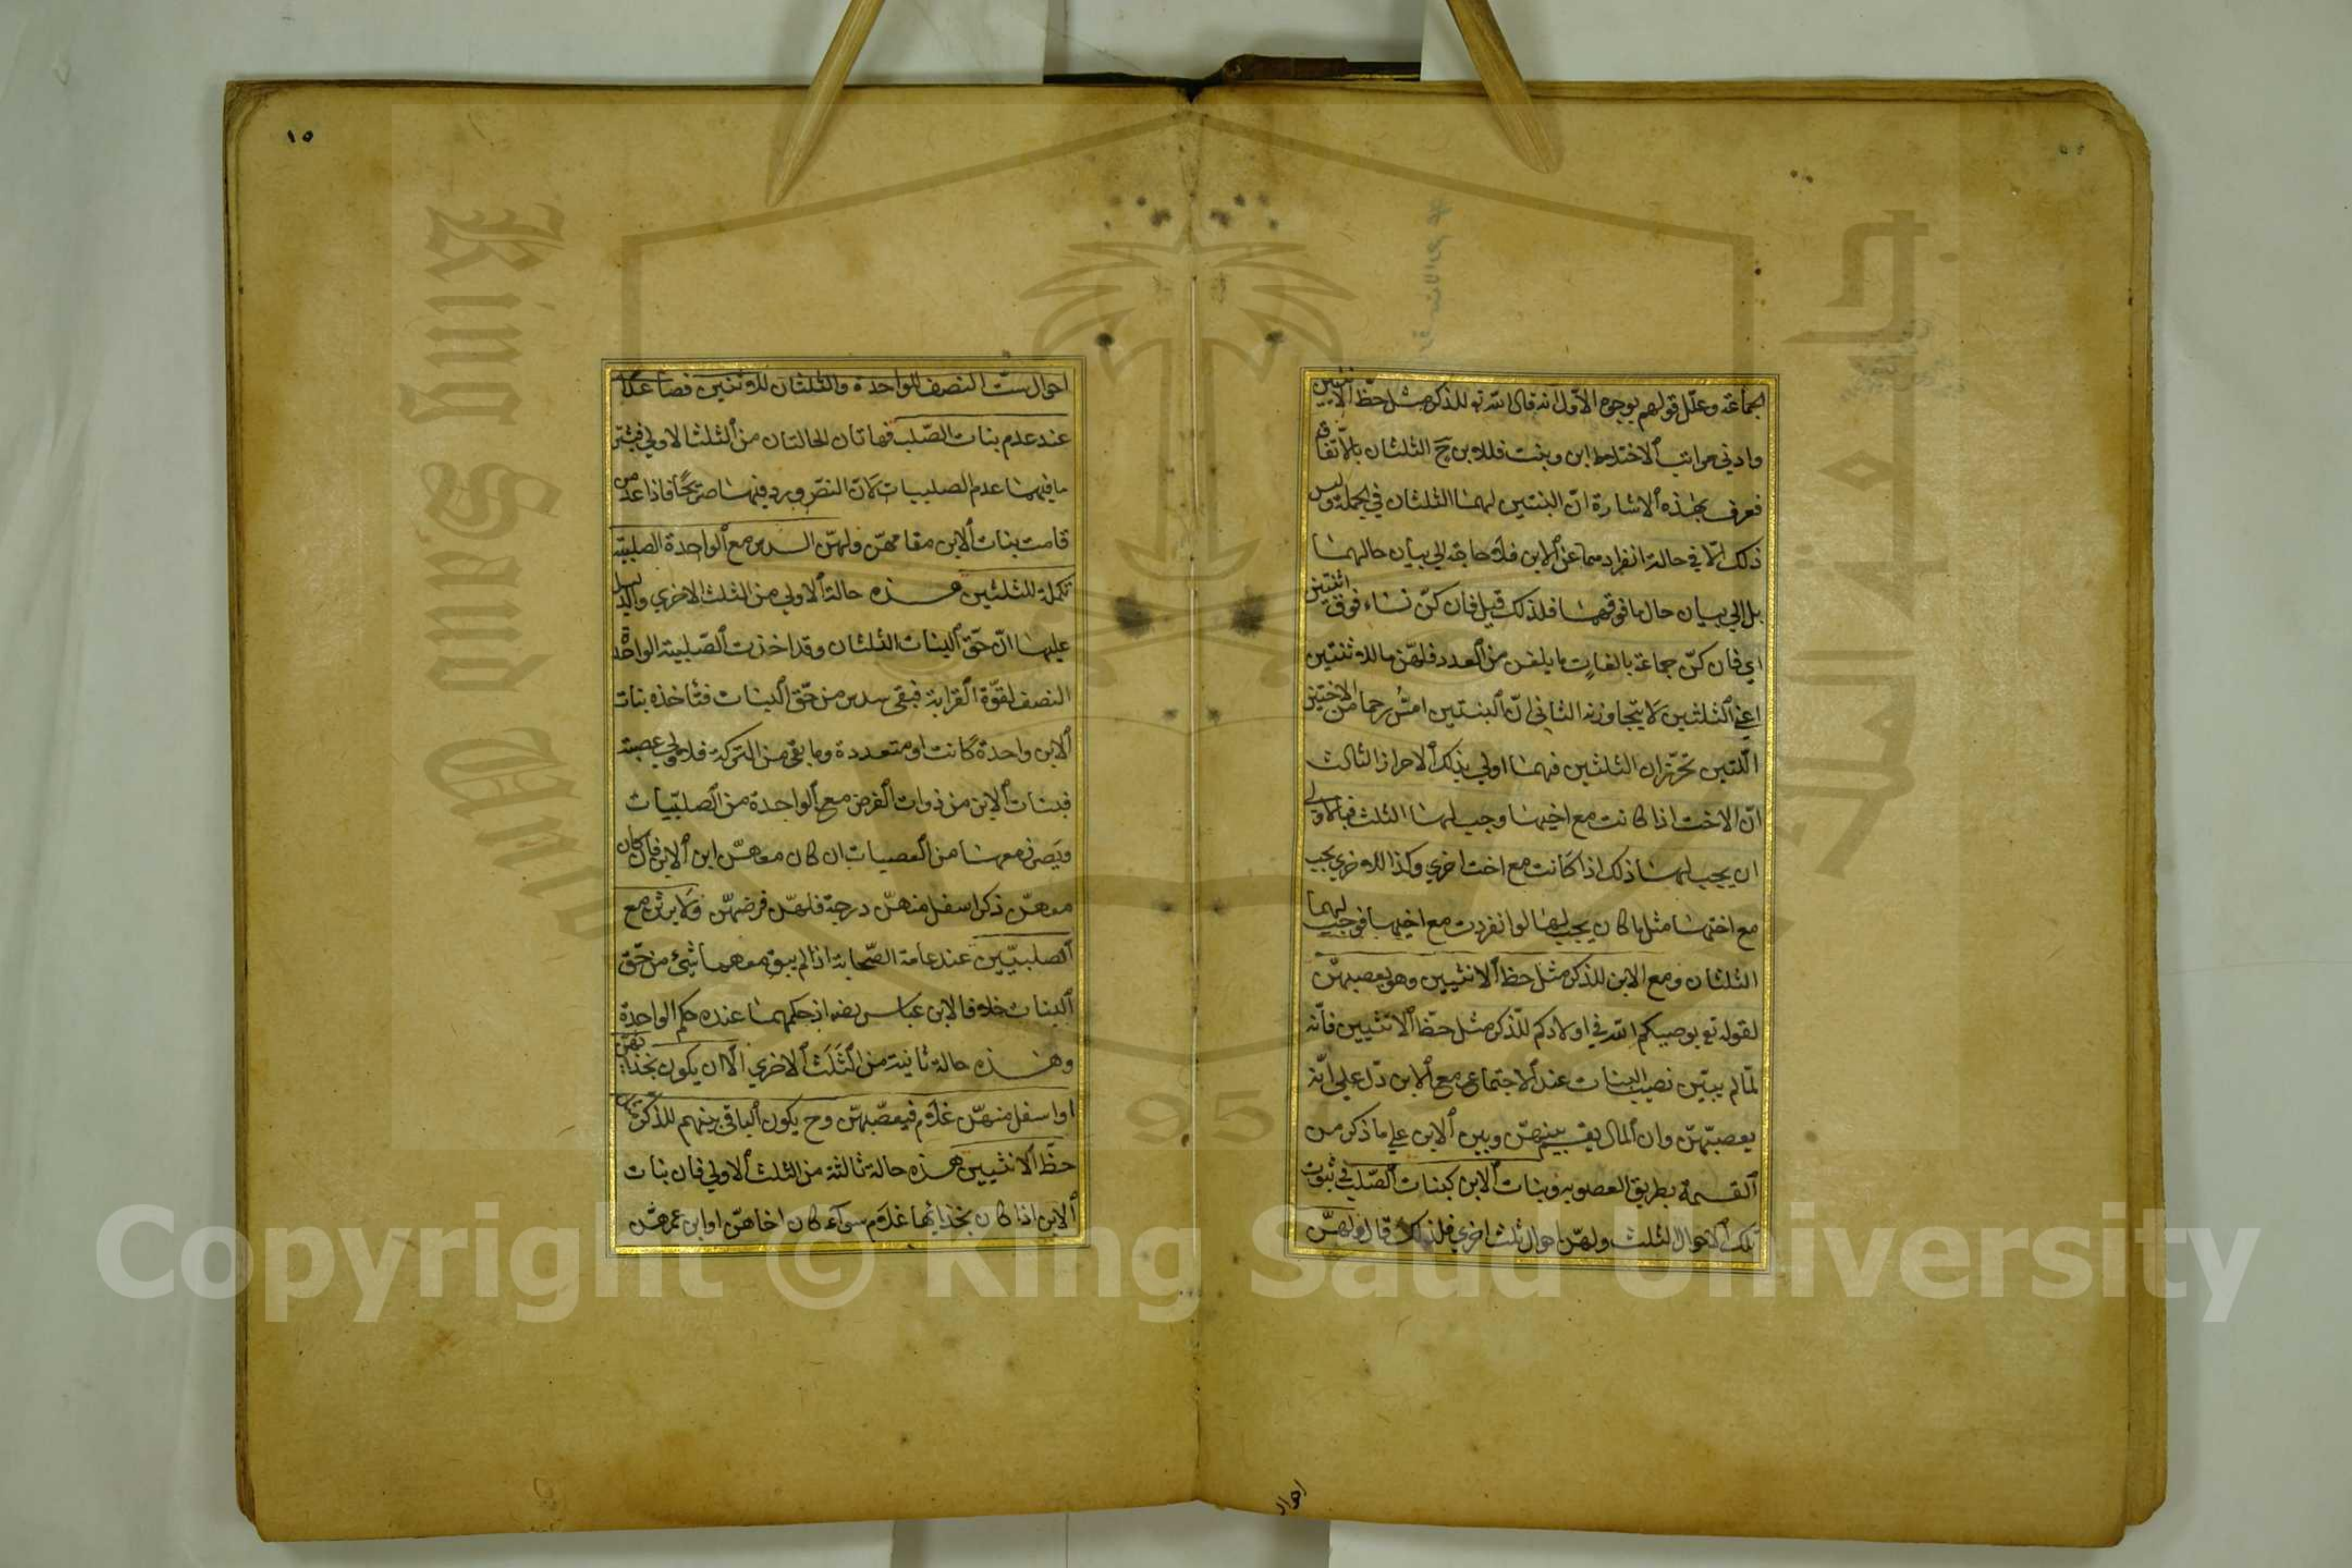 الجماعة وعلل قولهم بوجوه الاول انه قال الله تع للذكر مثل حظ الانثيين
وادنى مراتب الاختلاط ابن وبنت فللابن ح الثلثان بالاتفاق
فعرف بهذه الاشارة ان البنتين لهما الثلثان في الجملة وليس
ذلك الا في حالة انفرادهما عن الابن فلا حاجة الى بيان حالهما
بل الى بيان حال ما فوقهما فلذلك قيل فان كن نساء فوق اثنتين
اي فان كن جماعة بالغات ما بلغن من العدد فلهن ما للاثنتين
اعني الثلثين لا يتجاوزنه الثاني ان البنتين امس رحما من الاختين
اللتين تحرزان الثلثين فهما اولى بذلك الاحراز الثالث
ان الاخت اذا كانت مع اخيها وجب لها الثلث فبالاولى
ان يجب لها ذلك اذا كانت مع اخت اخرى وكذا للاخرى يجب
مع اختها مثل ما كان يجب لها لو انفردت مع اخيها فوجب لهما
الثلثان ومع الابن للذكر مثل حظ الانثيين وهو يعصبهن
لقوله تع يوصيكم الله في اولادكم للذكر مثل حظ الانثيين فانه
لما لم يبين نصيب البنات عند الاجتماع مع الابن دل على انه
يعصبهن وان المال يقسم بينهن وبين الابن على ما ذكر من
القسمة بطريق العصوبه وبنات الابن كبنات الصلب في ثبوت
تلك الاحوال الثلث ولهن احوال ثلث اخرى فلذلك قال ولهن
احوال
١٥
احوال ست النصف للواحدة والثلثان للاثنتين فصاعدا
عند عدم بنات الصلب فهاتان الحالتان من الثلث الاولى
ما فيهما عدم الصلبيات لان النص ورد فيهما صريحا فاذا عدمن
قامت بنات الابن مقامهن ولهن السدس مع الواحدة الصلبية
تكملة للثلثين هذه حالة الاولى من الثلث الاخرى والدليل
عليها ان حق البنات الثلثان وقد اخذت الصلبية الواحدة
النصف لقوة القرابة فبقي سدس من حق البنات فتاخذه بنات
الابن واحدة كانت او متعددة وما بقي من التركة فلاولى عصبة
فبنات الابن من ذوات الفرض مع الواحدة من الصلبيات
ويصرن معها من العصبات ان كان معهن ابن الابن فان كان
معهن ذكر اسفل منهن درجة فلهن فرضهن ولا يرثن مع
الصلبيتين عند عامة الصحابة اذا لم يبق معهما شيء من حق
البنات خلافا لابن عباس رضه اذ حكمهما عنده حكم الواحدة
وهذه حالة ثانية من الثلث الاخرى الا ان يكون بحذائهن
او اسفل منهن غلام فيعصبهن وح يكون الباقي بينهم للذكر مثل
حظ الانثيين هذه حالة ثالثة من الثلث الاولى فان بنات
الابن اذا كان بحذائها غلام سواء كان اخاهن او ابن عمهن
King Saud University
1957
Copyright © King Saud University